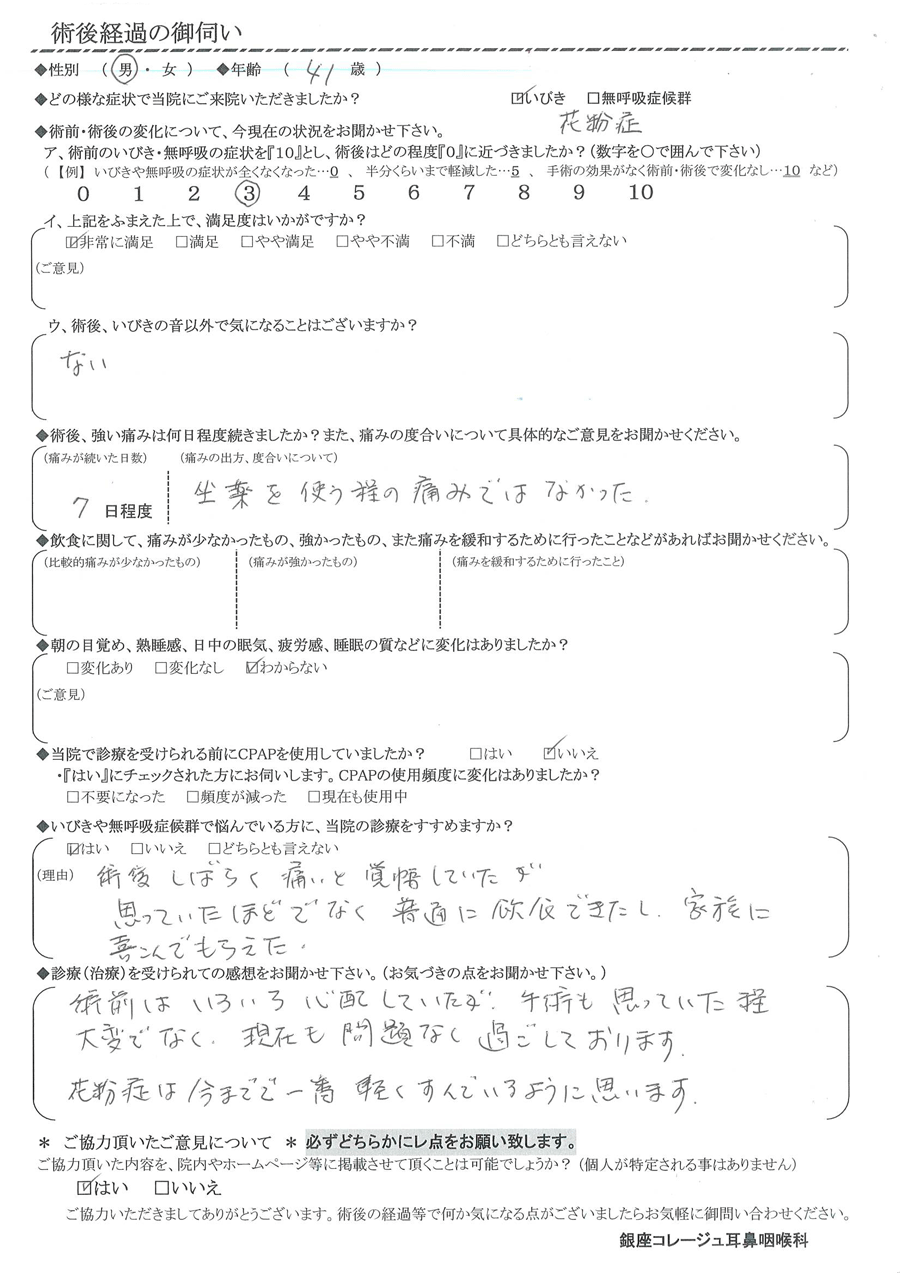 術後経過の御伺い
◆性別 （ 男 ・ 女 ） ◆年齢 （ 41 歳 ）
◆どの様な症状で当院にご来院いただきましたか？ ☑いびき □無呼吸症候群
花粉症
◆術前・術後の変化について、今現在の状況をお聞かせ下さい。
ア、術前のいびき・無呼吸の症状を『10』とし、術後はどの程度『0』に近づきましたか？（数字を〇で囲んで下さい）
（【例】 いびきや無呼吸の症状が全くなくなった…0 、 半分くらいまで軽減した…5 、 手術の効果がなく術前・術後で変化なし…10 など）
0 1 2 3 4 5 6 7 8 9 10
イ、上記をふまえた上で、満足度はいかがですか？
☑非常に満足 □満足 □やや満足 □やや不満 □不満 □どちらとも言えない
（ご意見）
ウ、術後、いびきの音以外で気になることはございますか？
ない
◆術後、強い痛みは何日程度続きましたか？また、痛みの度合いについて具体的なご意見をお聞かせください。
（痛みが続いた日数） （痛みの出方、度合いについて）
7 日程度 坐薬を使う程の痛みではなかった.
◆飲食に関して、痛みが少なかったもの、強かったもの、また痛みを緩和するために行ったことなどがあればお聞かせください。
（比較的痛みが少なかったもの） （痛みが強かったもの） （痛みを緩和するために行ったこと）
◆朝の目覚め、熟睡感、日中の眠気、疲労感、睡眠の質などに変化はありましたか？
□変化あり □変化なし ☑わからない
（ご意見）
◆当院で診療を受けられる前にCPAPを使用していましたか？ □はい ☑いいえ
・『はい』にチェックされた方にお伺いします。CPAPの使用頻度に変化はありましたか？
□不要になった □頻度が減った □現在も使用中
◆いびきや無呼吸症候群で悩んでいる方に、当院の診療をすすめますか？
☑はい □いいえ □どちらとも言えない
（理由） 術後しばらく痛いと覚悟していたが
思っていたほどでなく普通に飲食できたし、家族に
喜こんでもらえた.
◆診療（治療）を受けられての感想をお聞かせ下さい。（お気づきの点をお聞かせ下さい。）
術前はいろいろ心配していたが、手術も思っていた程
大変でなく、現在も問題なく過ごしております.
花粉症は今までで一番軽くすんでいるように思います.
＊ ご協力頂いたご意見について ＊ 必ずどちらかにレ点をお願い致します。
ご協力頂いた内容を、院内やホームページ等に掲載させて頂くことは可能でしょうか？（個人が特定される事はありません）
☑はい □いいえ
ご協力いただきましてありがとうございます。術後の経過等で何か気になる点がございましたらお気軽に御問い合わせください。
銀座コレージュ耳鼻咽喉科